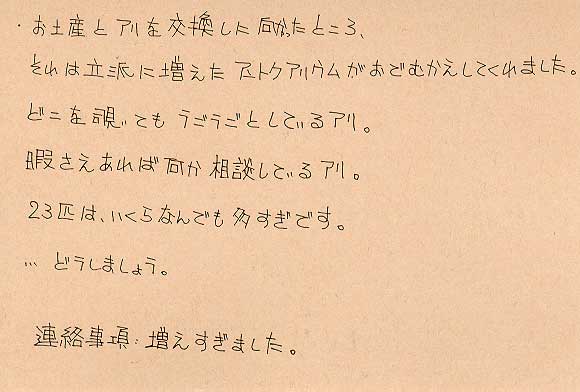 ・お土産とアリを交換しに向かったところ、
それは立派に増えたアントクアリウムがおでむかえしてくれました。
どこを覗いてもうごうごとしているアリ。
暇さえあれば何か相談しているアリ。
23匹は、いくらなんでも多すぎです。
… どうしましょう。
連絡事項：増えすぎました。